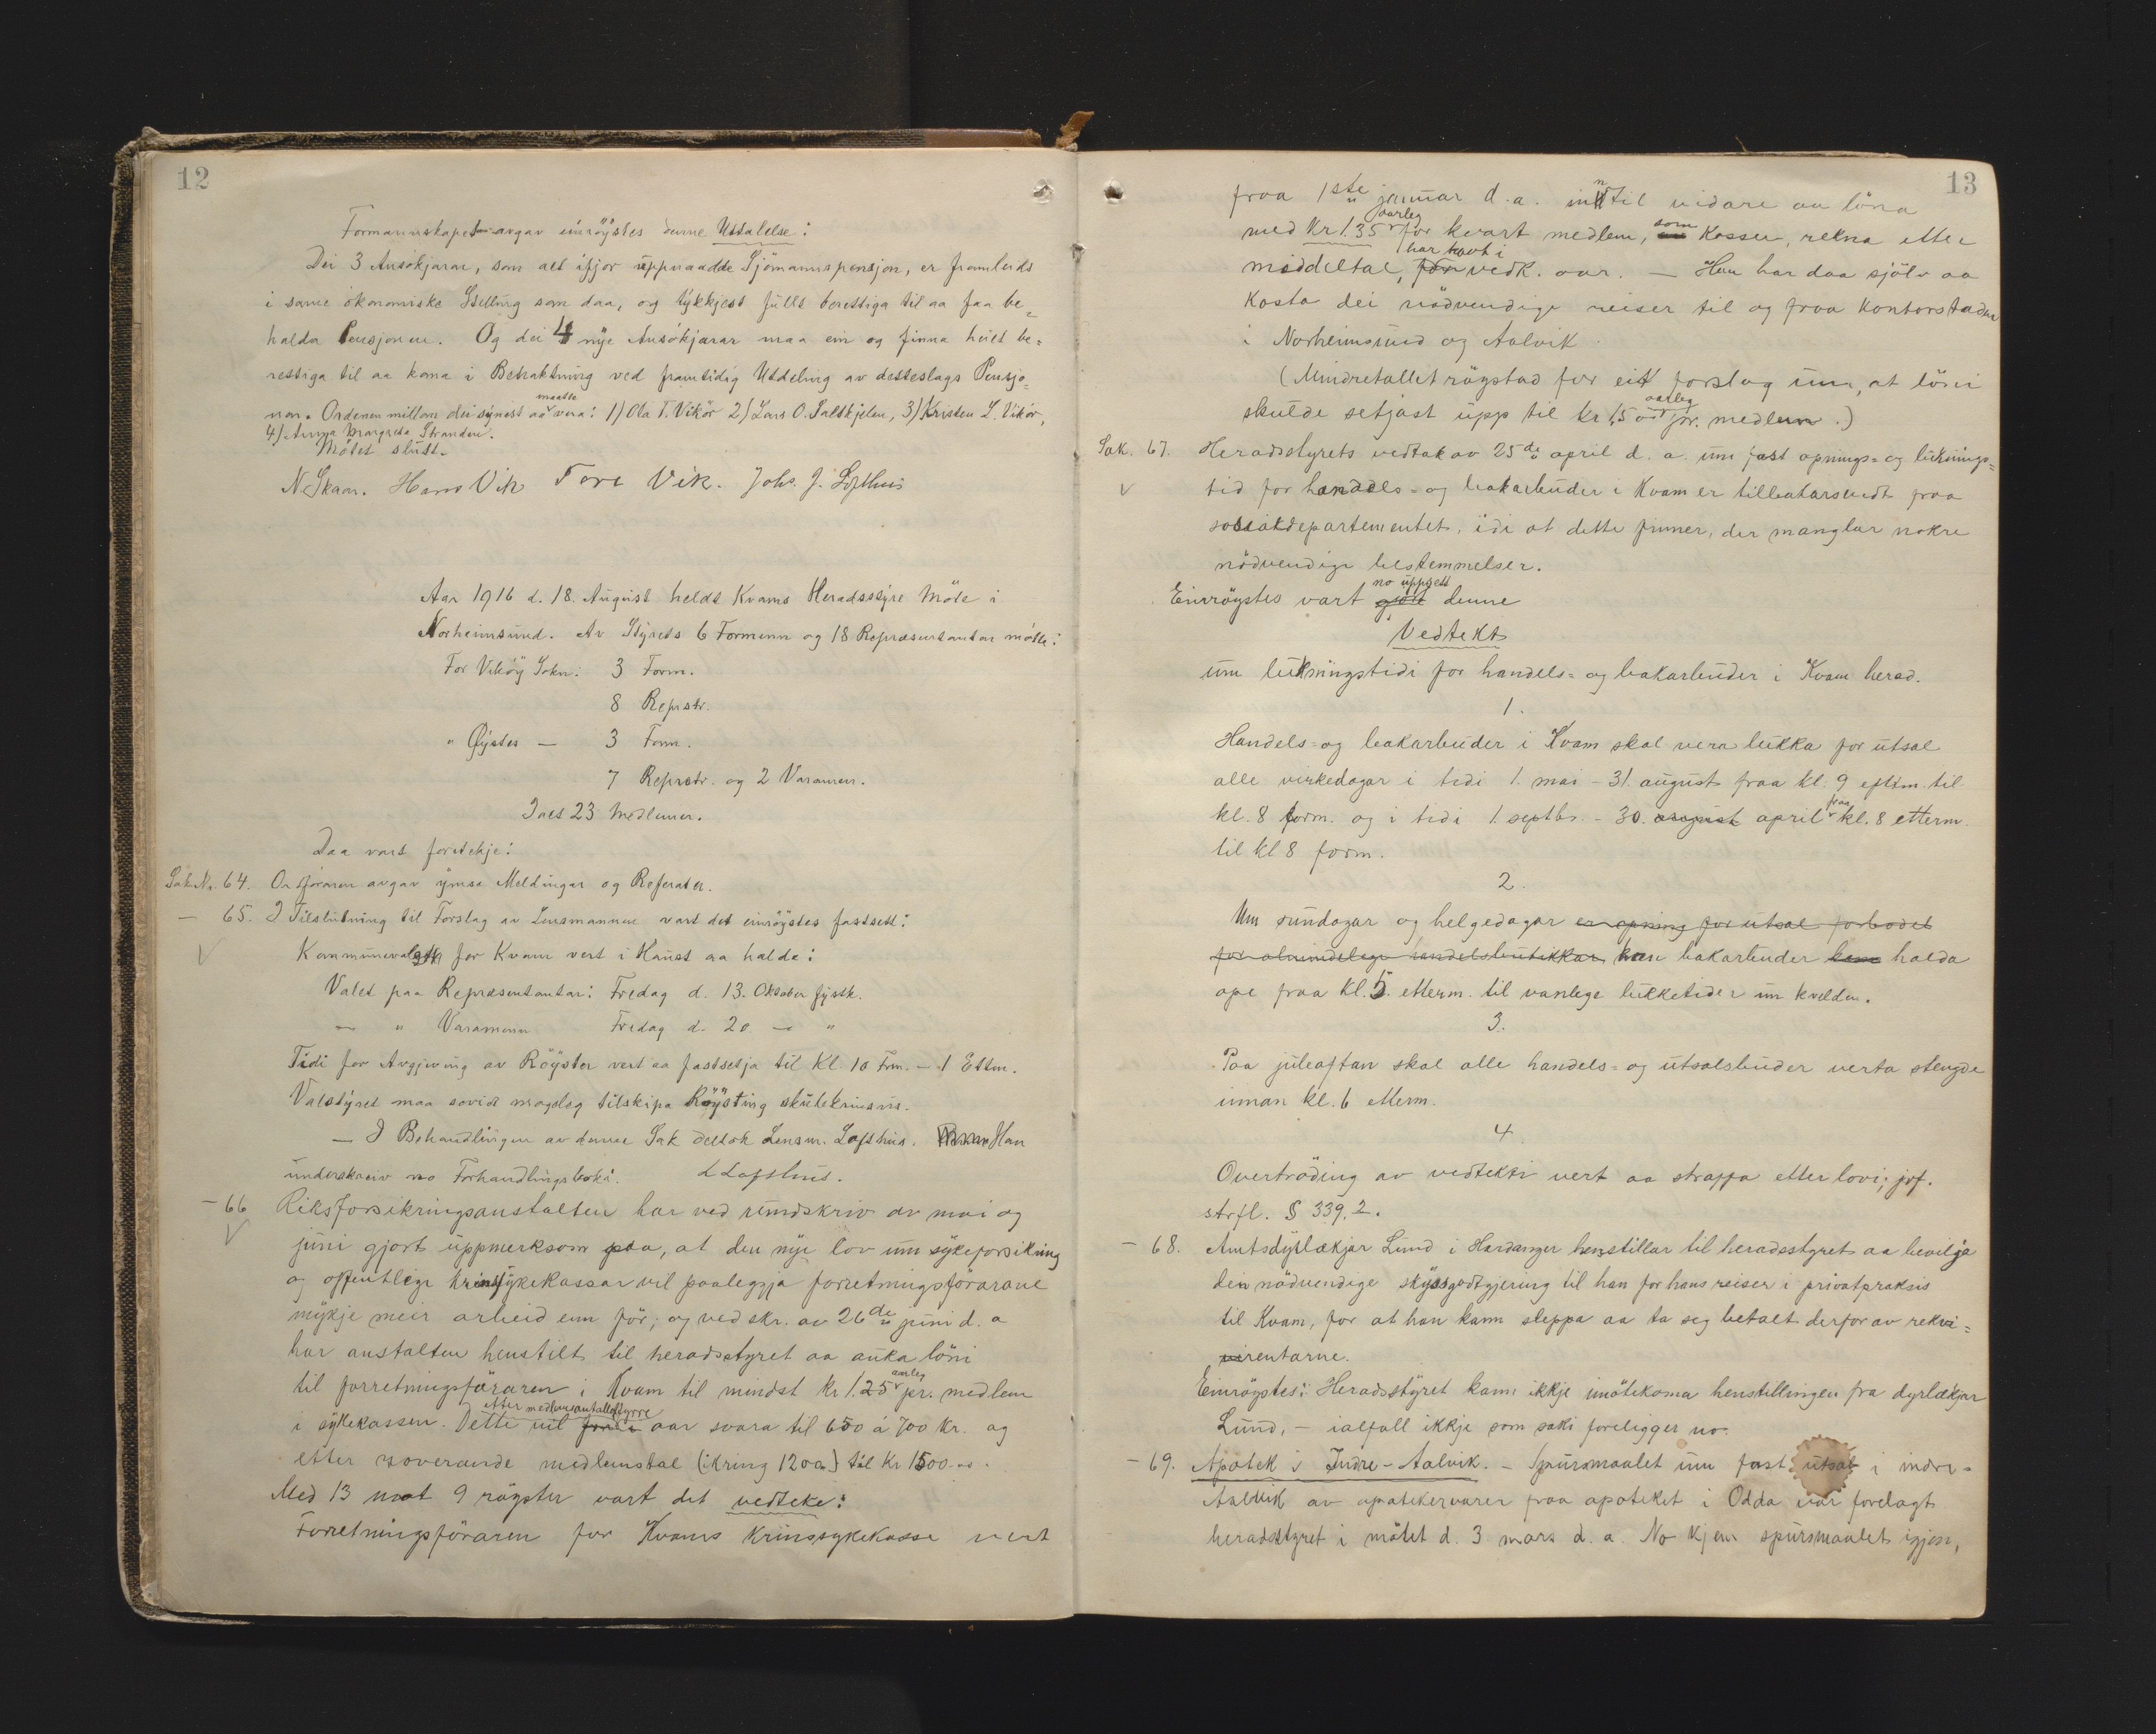 12
Formannskapet avgav einröystes denne Uttalelse:
Dei 3 Ansökjarar, som alt ifjor uppnaadde Sjömannspensjon, er framleids
i same ökonomiske Stelling som daa, og tykkjest fullt berettiga til aa faa be=
halda Pensjonen. Og dei 4 nye Ansökjarar maa ein og finna heilt be=
rettiga til aa koma i Betraktning ved framtidig Utdeling av desseslags Pensjo=
nar. Ordenen millom dei synest aa maatte vera: 1) Ola T. Vikör 2) Lars O. Saltkjelen, 3) Kristen L. Vikör,
4) Anna Margreta Stranden.
Mötet slutt.
N. Skaar. Hans Vik Tore Vik. Johs. J. Lofthus
Aar 1916 d. 18. August heldt Kvams Heradsstyre Möte i
Norheimsund. Av Styrets 6 Formenn og 18 Representantar mötte:
For Viköy Sokn: 3 Form.
8 Reprstr.
" Öystes — 3 Form.
7 Reprstr. og 2 Varamenn.
Ialt 23 Medlemer.
Daa vart foreteke:
Sak Nr. 64. Ordföraren avgav ymse Meldingar og Referater.
— 65. I Tilslutning til Forslag av Lensmannen vart det einröystes fastsett:
Kommunevalget for Kvam vert i Haust aa halda:
Valet paa Representantar: Fredag d. 13. Oktober fystk.
— " Varamenn Fredag d. 20 — "
Tidi for Avgjeving av Röyster vert aa fastsetja til Kl. 10 Frm. — 1 Ettm.
Valstyret maa sovidt mogleg tilskipa Röysting skulekrinsvis.
— I Behandlingen av denne Sak deltok Lensm. Lofthus. Han
underskreiv no Forhandlingsboki. L Lofthus.
— 66 Riksforsikringsanstalten har ved rundskriv av mai og
juni gjort uppmerksom paa, at den nye lov um sykeforsikring
og offentlege krinssykekassar vil paaleggja forretningsförarane
mykje meir arbeid enn för; og ved skr. av 26de juni d. a
har anstalten henstilt til heradsstyret aa auka löni
til forretningsföraren i Kvam til mindst kr 1.25 aarleg pr. medlem
i sykekassen. Dette vil etter medlemsantallet fyrre aar svara til 650 á 700 kr. og
etter noverande medlemstal (ikring 1200) til kr 1500.00.
Med 13 mot 9 röyster vart det vedteke:
Forretningsföraren for Kvams krinssykekasse vert
13
fraa 1ste januar d. a. inntil vidare aa löna
med kr 1.35 aarleg for kvart medlem, som Kassen, rekna etter
middeltal, har havt i vedk. aar. — Han har daa sjölv aa
kosta dei nödvendige reiser til og fraa kontorstaden
i Norheimsund og Aalvik.
(Mindretallet röystad for eit forslag um, at löni
skulde setjast upp til kr 1,50 aarleg pr. medlem.)
Sak. 67. Heradsstyrets vedtak av 25de april d. a. um fast opnings= og luknings=
tid for handels= og bakarbuder i Kvam er tilbakarsendt fraa
sosialdepartementet, idi at dette finner, der manglar nokre
nödvendige bestemmelser.
Einröystes vart gjort no uppsett denne
Vedtekt
um lukningstidi for handels= og bakarbuder i Kvam herad.
1.
Handels= og bakarbuder i Kvam skal vera lukka for utsal
alle virkedagar i tidi 1. mai – 31. august fraa kl. 9 efterm. til
kl. 8 form. og i tidi 1. septbr. – 30. august april fraa kl. 8 etterm.
til kl 8 form.
2.
Um sundagar og helgedagar er opning for utsal forbodet
for almindelege handelsbutikkar kan bakarbuder kan halda
ope fraa kl. 5. etterm. til vanlege lukketider um kvelden.
3.
Paa juleaftan skal alle handels= og utsalsbuder verta stengde
innan kl. 6 etterm.
4
Overtröding av vedtekti vert aa straffa etter lovi; jvf.
strfl. § 339,2.
— 68. Amtsdyrlækjar Lund i Hardanger henstillar til heradsstyret aa bevilja
dein nödvendige skyssgodtgjering til han for hans reiser i privatpraksis
til Kvam, for at han kann sleppa aa ta seg betalt derfor av rekvi=
rentarne.
Einröystes: Heradsstyret kann ikkje imötekoma henstillingen fra dyrlækjar
Lund, – ialfall ikkje som saki foreligger no.
— 69. Apotek i Indre-Aalvik. – Spursmaalet um fast utsal i indre-
Aalvik av apotekervarer fraa apoteket i Odda var forelagt
heradsstyret i mötet d. 3 mars d. a. No kjem spursmaalet igjen,